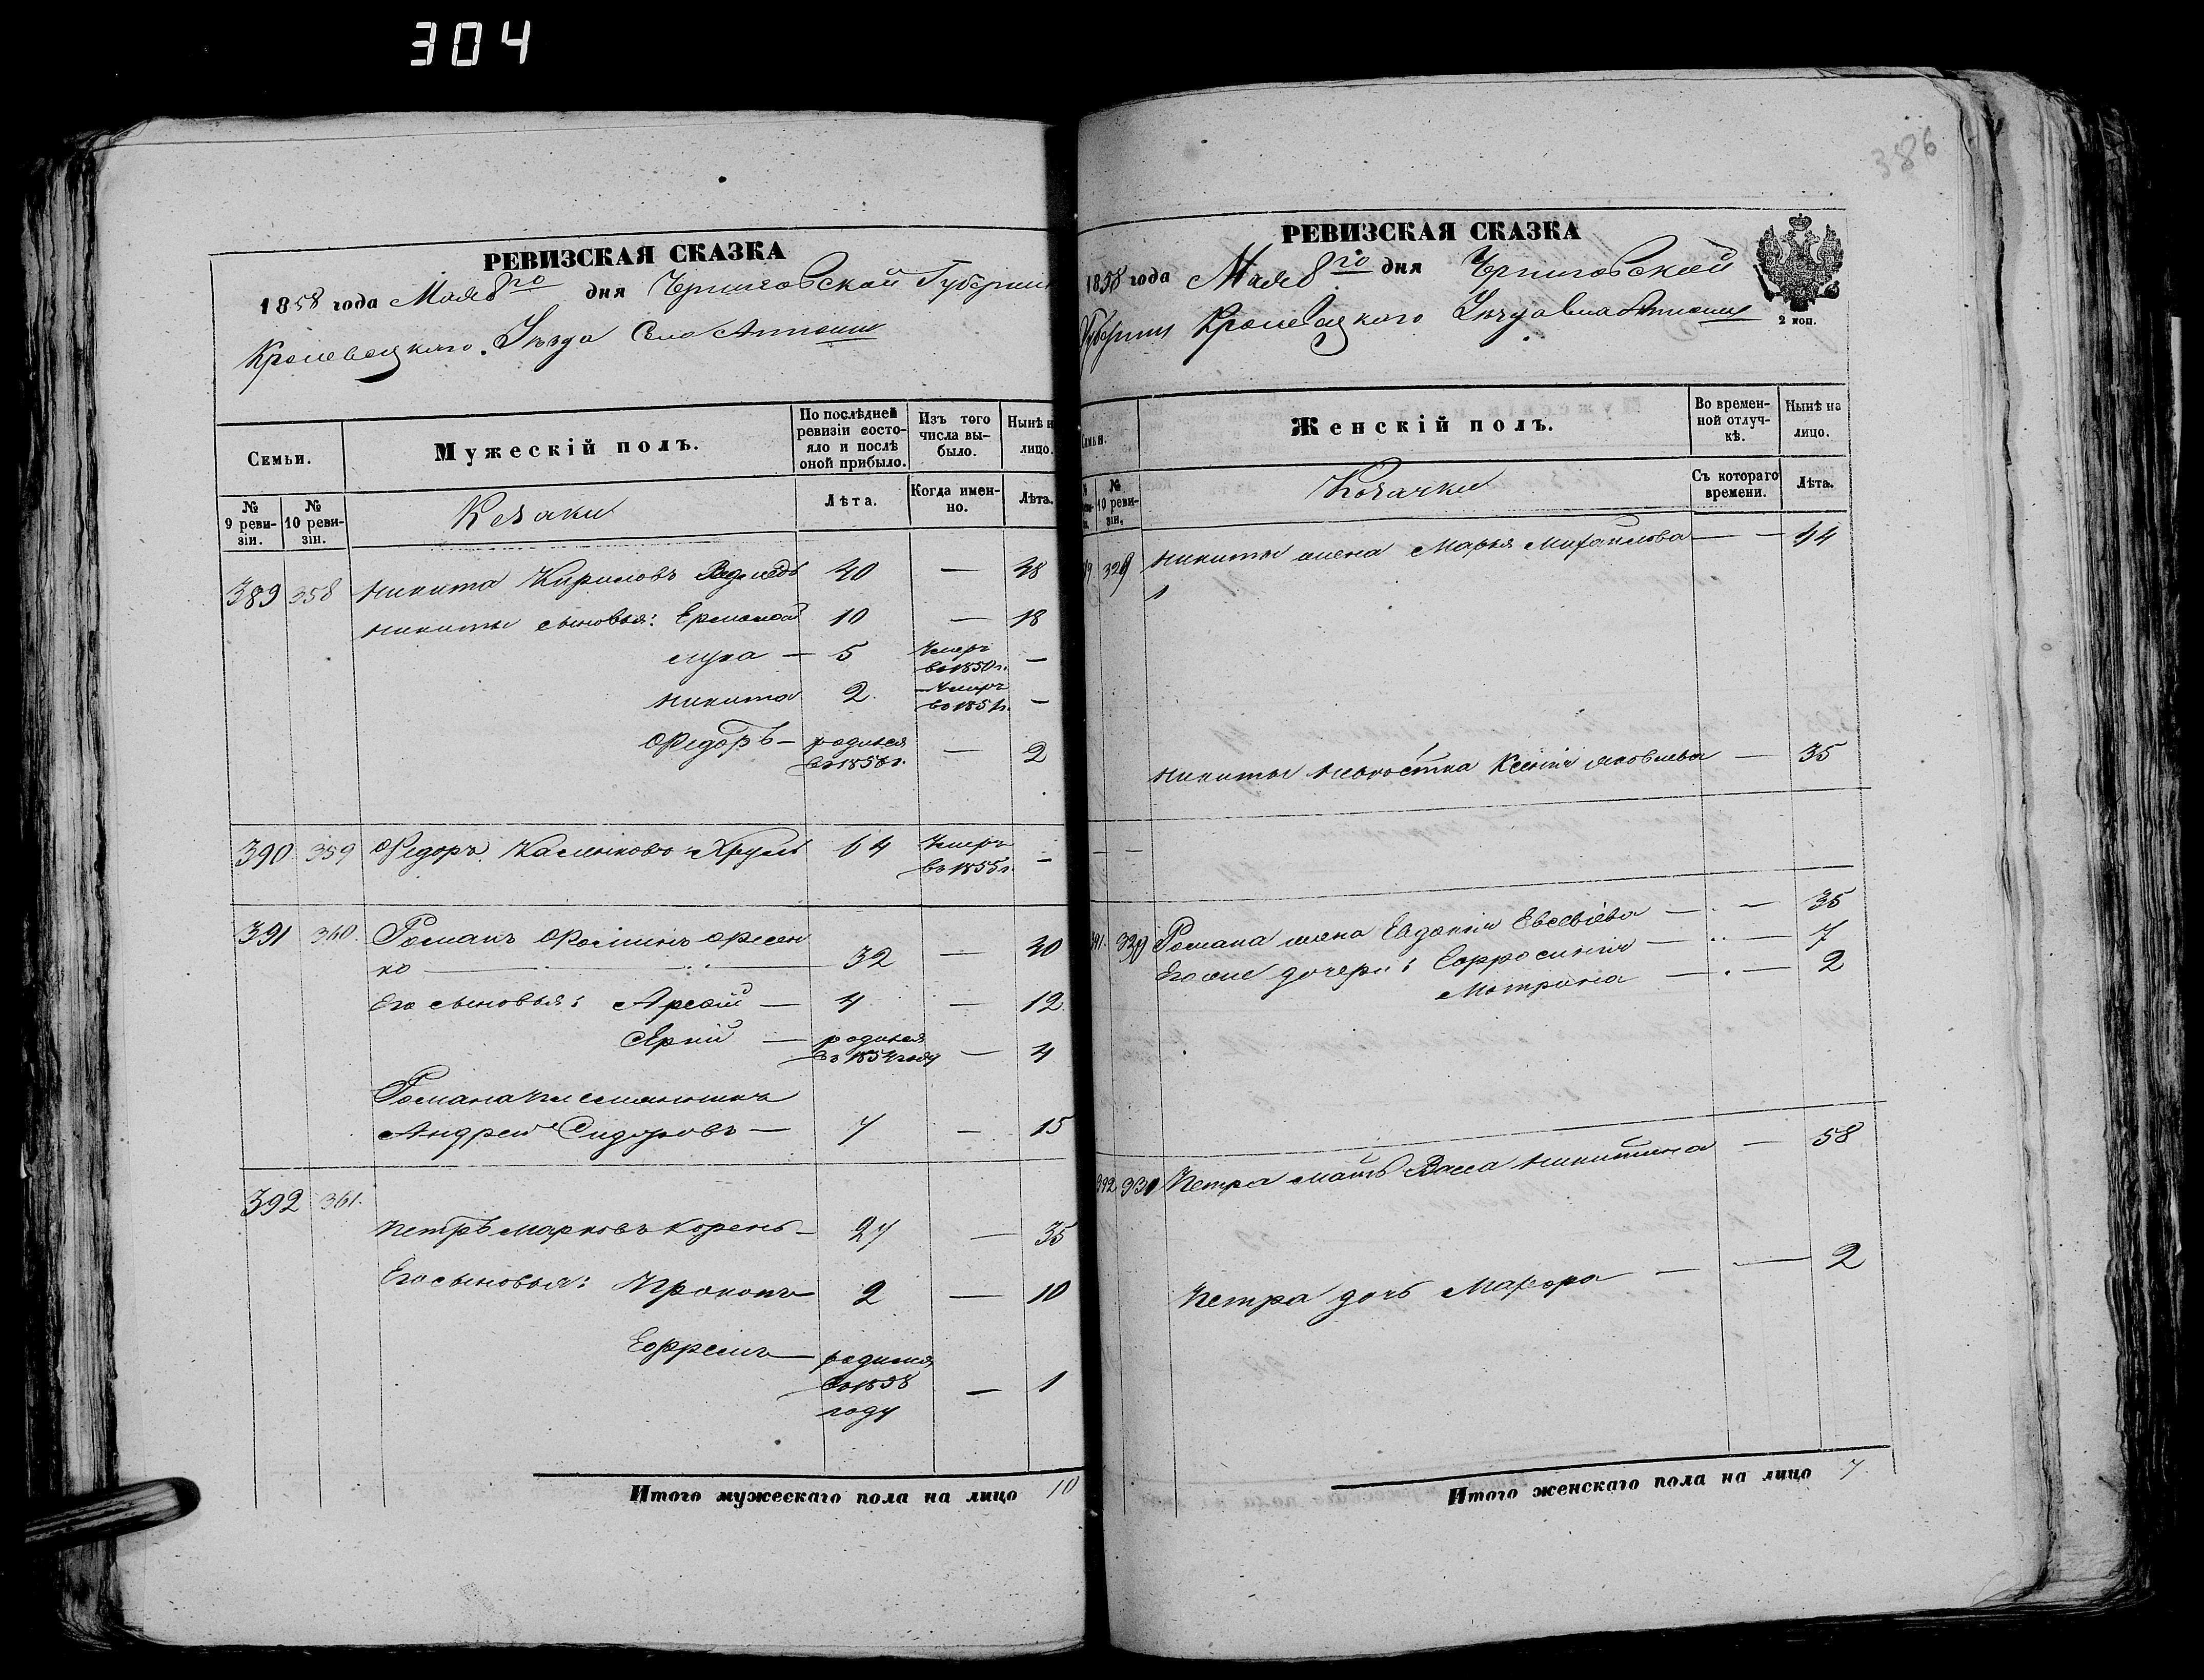 304
386
РЕВИЗСКАЯ СКАЗКА
1858 года Мая 8го дня Черниговской Губернии
Кролевецкаго Уѣзда Село
Семьи.
Мужескій полъ.
По послѣдней ревизіи состояло и послѣ оной прибыло.
Изъ того числа выбыло.
Нынѣ н лицо.
№ 9 ревизіи.
№ 10 ревизіи.
Козаки
Лѣта.
Когда именно.
Лѣта.
389 358 Никита Кириловъ 40 — 48
Никиты сыновья: Ермолай 10 — 18
Лука — 5 Умеръ въ 1850 г. —
Никита 2 Умеръ въ 1851 г. —
Федоръ — родился въ 1856 г. — 2
390 359 Федоръ 64 Умеръ въ 1855 г. —
391 360 Романъ Фоминъ
ко — 32 — 40
Его сыновья: — 4 — 12
— родился въ 1854 году — 4
Романа племянникъ
Андрей Сидоровъ — 7 — 15
392 361.
Петръ Марковъ Корень — 27 — 35
Его сыновья: Прокопъ 2 — 10
Ефремъ — родился въ 1858 году — 1
Итого мужескаго пола на лицо 10
РЕВИЗСКАЯ СКАЗКА
1858 года Мая 8го дня Черниговской
Губернии Кролевецкаго Уѣзда Села
2 коп.
Семьи.
Женскій полъ.
Во временной отлучкѣ.
Нынѣ на лицо.
№ 10 ревизіи.
Козачки
Съ котораго времени.
Лѣта.
Никиты жена Марья Михайлова — — 44
Никиты невѣстка Ксенія Яковлева — 35
— —
Романа жена Евдокія Евсѣвіева — — 35
Его же дочери: Евфросинія — — 7
Мотрона — — 2
392 330 Петра мать Васса Никитина — 58
Петра дочь Марфа — — 2
Итого женскаго пола на лицо 7.